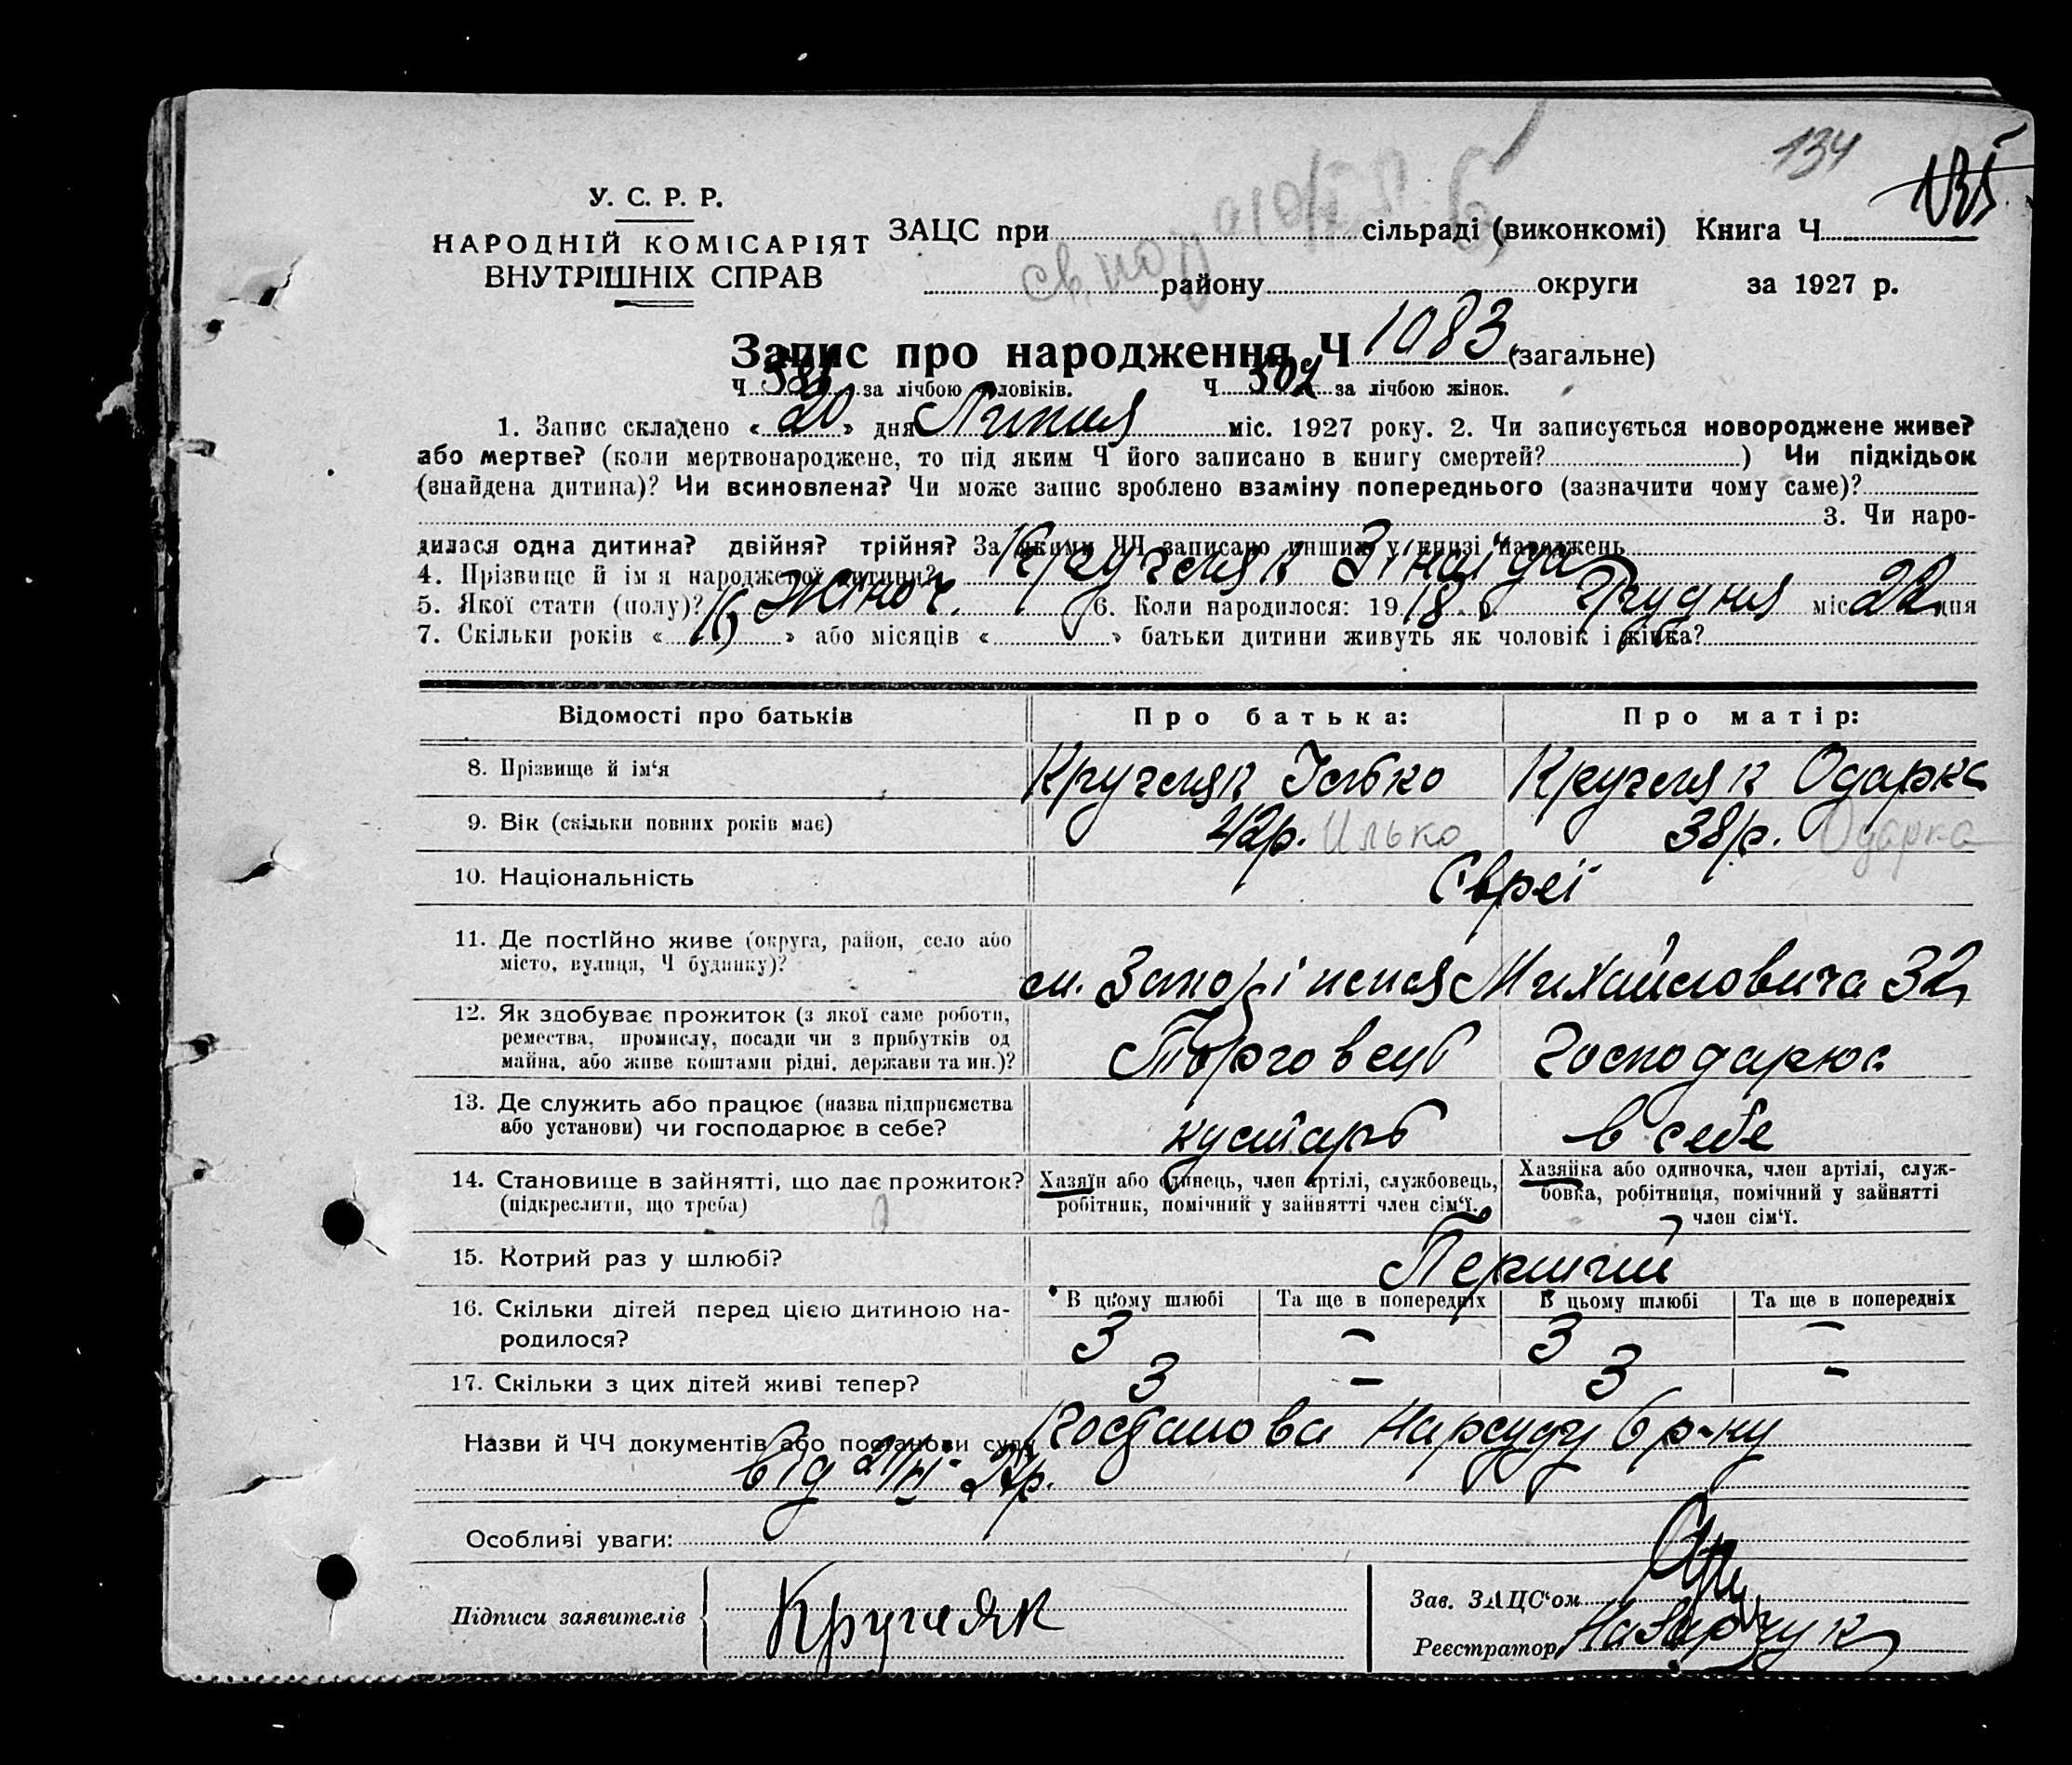 134
135
У. С. Р. Р.
НАРОДНІЙ КОМІСАРІЯТ
ВНУТРІШНІХ СПРАВ
ЗАЦС при сільраді (виконкомі) Книга Ч
району округи за 1927 р.
Запис про народження Ч 1083 (загальне)
Ч 581 за лічбою чоловіків. Ч 502 за лічбою жінок.
1. Запис складено « 20 » дня Липня міс. 1927 року. 2. Чи записується новороджене живе?
або мертве? (коли мертвонароджене, то під яким Ч його записано в книгу смертей? ) Чи підкідьок
(знайдена дитина)? Чи всиновлена? Чи може запис зроблено взаміну попереднього (зазначити чому саме)?
3. Чи наро-
дилася одна дитина? двійня? трійня? За якими ЧЧ записано инших у книзі народжень
4. Прізвище й ім я народженої дитини? Кругляк Зінаїда
5. Якої стати (полу)? Жіноч. 6. Коли народилося: 19 18 р. Грудня міс 22 дня
7. Скільки років « » або місяців « » батьки дитини живуть як чоловік і жінка?
Відомості про батьків Про батька: Про матір:
8. Прізвище й ім‘я Кругляк Ілько Кругляк Одарка
9. Вік (скільки повних років має) 42р. Илько 38р. Одарка
10. Національність Євреї
11. Де постІйно живе (округа, район, село або
місто, вулиця, Ч будинку)? м. Михайловича 32
12. Як здобуває прожиток (з якої саме роботи,
ремества, промислу, посади чи з прибутків од
майна, або живе коштами рідні, держави та ин.)? Торговець Господарює
13. Де служить або працює (назва підприємства
або установи) чи господарює в себе? кустарь в себе
14. Становище в зайнятті, що дає прожиток?
(підкреслити, що треба)
Хазяїн або одинець, член артілі, службовець,
робітник, помічний у зайнятті член сім‘ї.
Хазяйка або одиночка, член артілі, служ-
бовка, робітниця, помічний у зайнятті
член сім‘ї.
15. Котрий раз у шлюбі? Перший
16. Скільки дітей перед цією дитиною на-
родилося?
В цьому шлюбі Та ще в попередніх В цьому шлюбі Та ще в попередніх
3 – 3 –
17. Скільки з цих дітей живі тепер? 3 – 3 –
Назви й ЧЧ документів або постанови суду Постанова Нарсуду 6 р-ну
від
Особливі уваги:
Підписи заявителів Кругляк
Зав. ЗАЦС‘ом
Реєстратор Назарчук